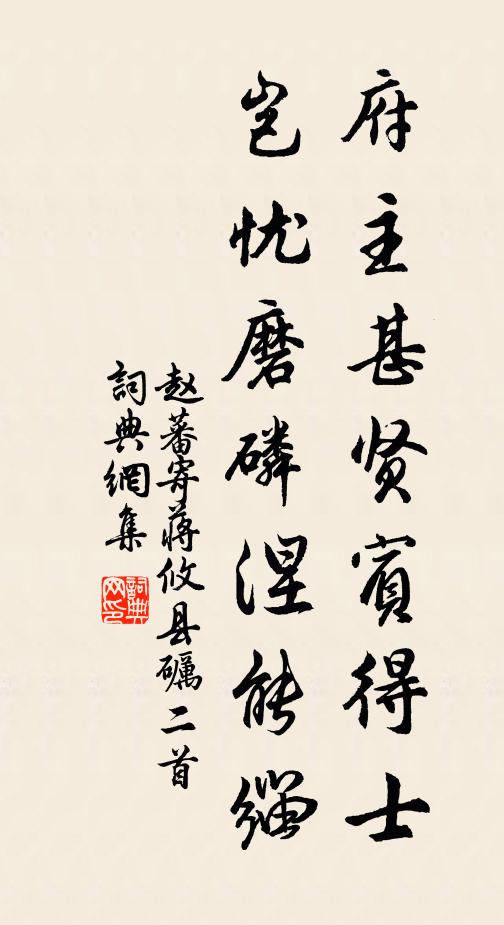 府主甚贤賓得士
岂忧磨磷涅能缁
赵蕃寄蒋攸县礪二首
詞典網集